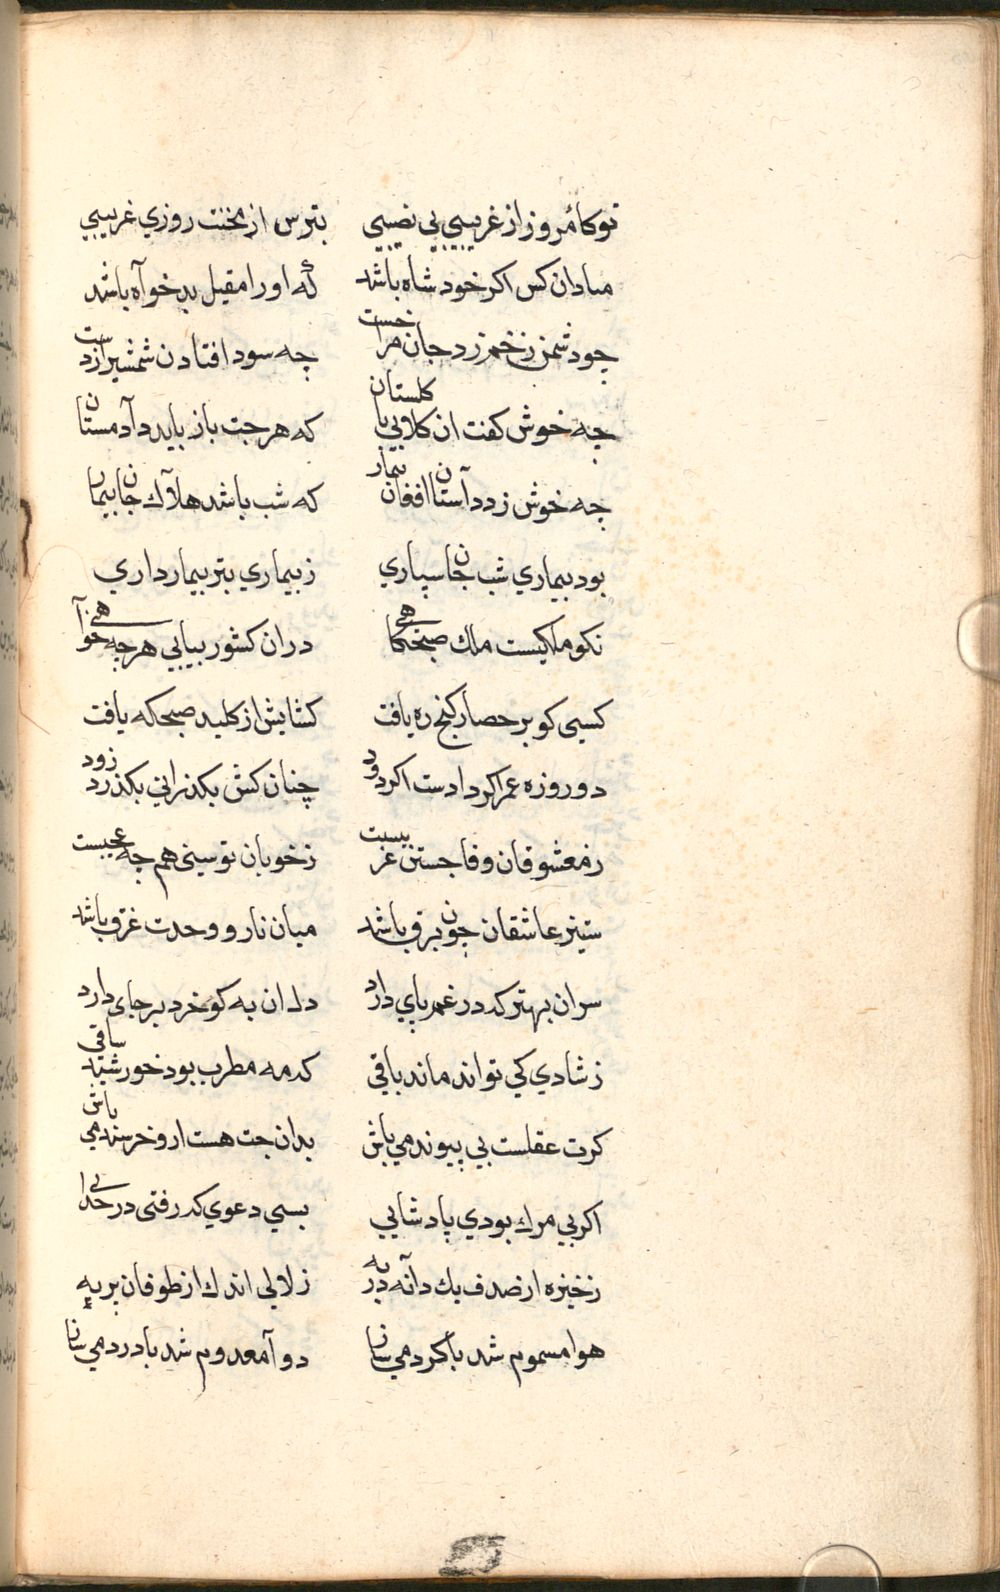 توكامروز از غريبي بي نصيبي بترس از محنت روزي غريبي
مبادان كس اكر خود شاه باشد كه اورا مقبل بد خوآه باشد
چو دشمن زخم زد جان مرا خست چه سود افتادن شمشير از دست
چه خوش كفت ان كلابي با كلستان كه هرچت باز بايد داد مستان
چه خوش زد دآستان افغان بيمار كه شب باشد هلآك جان بيمار
بود بيماري شب جان سپاري ز بيماري بتر بيمار داري
نكو ملكيست ملك صبحكاهي دران كشور بيابي هرچه خوآهي
كسي كو بر حصار كنج ره يافت كشايش از كليد صبحكه يافت
دو روزه عمر اكر داد است اكر دود چنان كش بكذراني بكذرد زود
ز معشوقان وفا جستن غريبست ز خوبان توسني هم چه عجيبست
ستيز عاشقان چون برق باشد ميان نار و وحدت غرق باشد
سران بهتر كه در غم پاي دارد دل ان به كو خرد بر جاى دارد
ز شادي كي تواند ماند باقي كه مه مطرب بود خورشيد ساقي
كرت عقلست بي پيوند مي باش بدان چت هست ازو خرسند مي باش
اكر بي مرك بودي پادشايي بسي دعوي كه رفتى در خدايي
ذخيره از صدف يك دآنه در به زلالي اندك از طوفان پر به
هوا مسموم شد با كرد مي ساز دوآ معدوم شد با درد مي ساز